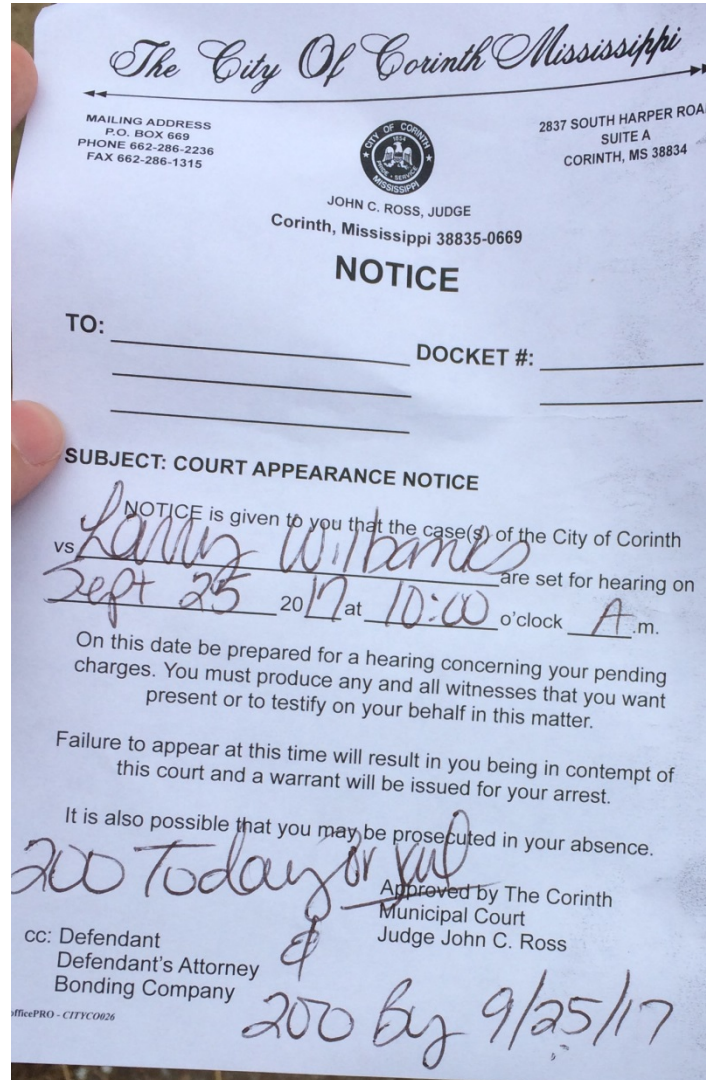 The City Of Corinth Mississippi
MAILING ADDRESS
P.O. BOX 669
PHONE 662-286-2236
FAX 662-286-1315
CITY OF CORINTH
1854
PRIDE • SERVICE
MISSISSIPPI
2837 SOUTH HARPER ROA
SUITE A
CORINTH, MS 38834
JOHN C. ROSS, JUDGE
Corinth, Mississippi 38835-0669
NOTICE
TO:
DOCKET #:
SUBJECT: COURT APPEARANCE NOTICE
NOTICE is given to you that the case(s) of the City of Corinth
vs Larry Wilbanks are set for hearing on
Sept 25 2017 at 10:00 o'clock A.m.
On this date be prepared for a hearing concerning your pending
charges. You must produce any and all witnesses that you want
present or to testify on your behalf in this matter.
Failure to appear at this time will result in you being in contempt of
this court and a warrant will be issued for your arrest.
It is also possible that you may be prosecuted in your absence.
200 Today or jail
Approved by The Corinth
Municipal Court
Judge John C. Ross
&
cc: Defendant
Defendant's Attorney
Bonding Company
200 By 9/25/17
fficePRO - CITYCO026